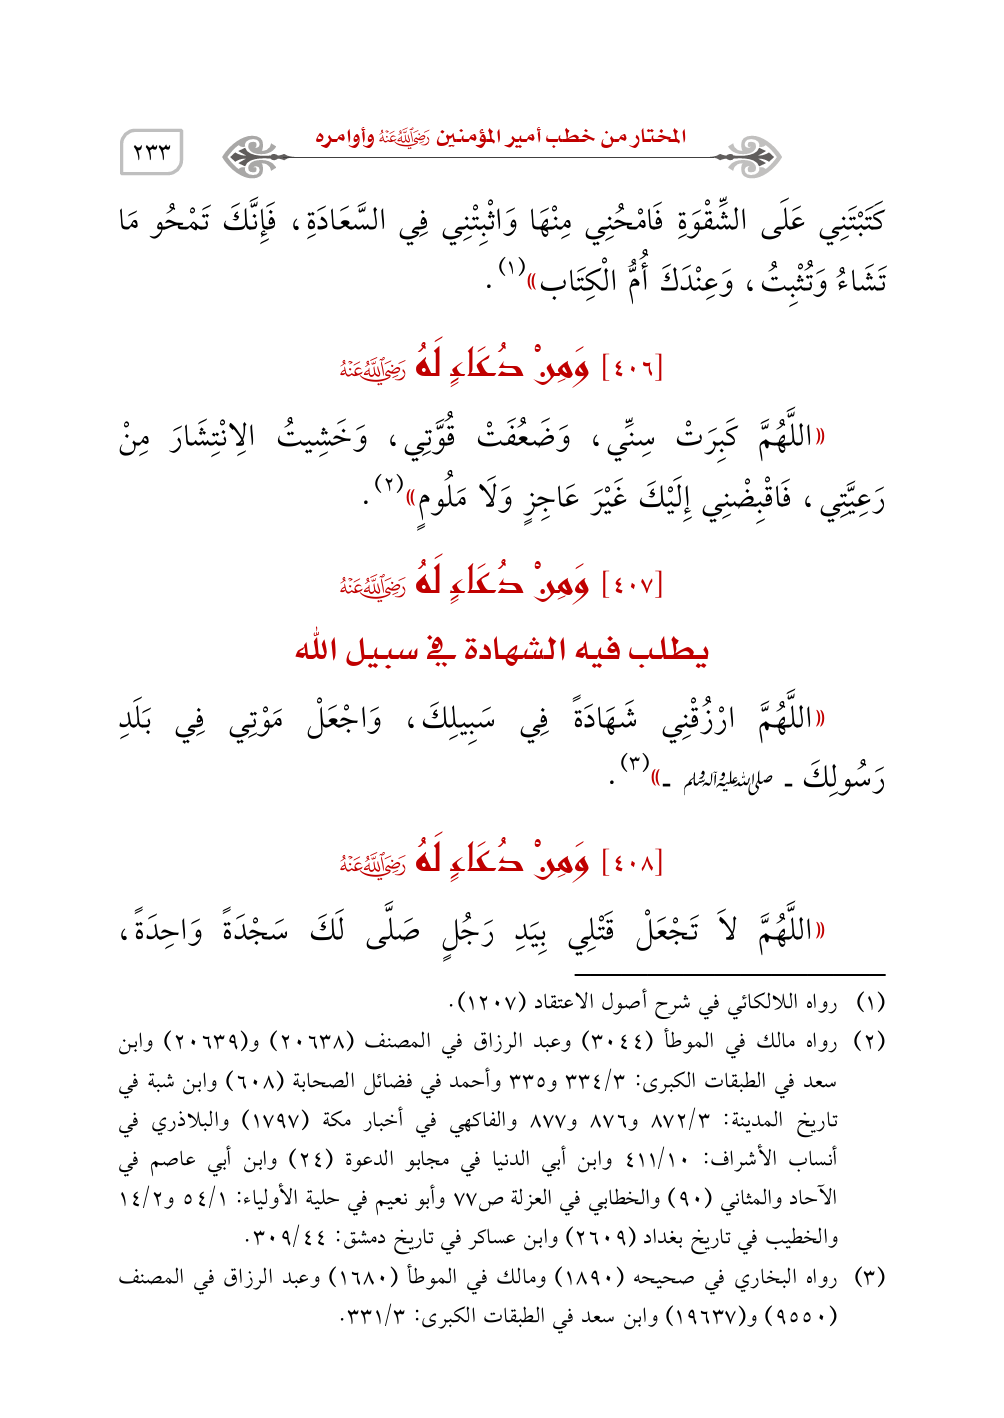 المختار من خطب أمير المؤمنين رَضِيَ اللَّهُ عَنْهُ وأوامره
٢٣٣
كَتَبْتَنِي عَلَى الشِّقْوَةِ فَامْحُنِي مِنْهَا وَاثْبِتْنِي فِي السَّعَادَةِ، فَإِنَّكَ تَمْحُو مَا
تَشَاءُ وَتُثْبِتُ، وَعِنْدَكَ أُمُّ الْكِتَاب»(١).
[٤٠٦] وَمِنْ دُعَاءٍ لَهُ رَضِيَ اللَّهُ عَنْهُ
«اللَّهُمَّ كَبِرَتْ سِنِّي، وَضَعُفَتْ قُوَّتِي، وَخَشِيتُ الِانْتِشَارَ مِنْ
رَعِيَّتِي، فَاقْبِضْنِي إِلَيْكَ غَيْرَ عَاجِزٍ وَلَا مَلُومٍ»(٢).
[٤٠٧] وَمِنْ دُعَاءٍ لَهُ رَضِيَ اللَّهُ عَنْهُ
يطلب فيه الشهادة في سبيل الله
«اللَّهُمَّ ارْزُقْنِي شَهَادَةً فِي سَبِيلِكَ، وَاجْعَلْ مَوْتِي فِي بَلَدِ
رَسُولِكَ ـ صلى الله عليه وآله وسلم ـ»(٣).
[٤٠٨] وَمِنْ دُعَاءٍ لَهُ رَضِيَ اللَّهُ عَنْهُ
«اللَّهُمَّ لاَ تَجْعَلْ قَتْلِي بِيَدِ رَجُلٍ صَلَّى لَكَ سَجْدَةً وَاحِدَةً،
(١) رواه اللالكائي في شرح أصول الاعتقاد (١٢٠٧).
(٢) رواه مالك في الموطأ (٣٠٤٤) وعبد الرزاق في المصنف (٢٠٦٣٨) و(٢٠٦٣٩) وابن
سعد في الطبقات الكبرى: ٣٣٤/٣ و٣٣٥ وأحمد في فضائل الصحابة (٦٠٨) وابن شبة في
تاريخ المدينة: ٨٧٢/٣ و٨٧٦ و٨٧٧ والفاكهي في أخبار مكة (١٧٩٧) والبلاذري في
أنساب الأشراف: ٤١١/١٠ وابن أبي الدنيا في مجابو الدعوة (٢٤) وابن أبي عاصم في
الآحاد والمثاني (٩٠) والخطابي في العزلة ص٧٧ وأبو نعيم في حلية الأولياء: ٥٤/١ و١٤/٢
والخطيب في تاريخ بغداد (٢٦٠٩) وابن عساكر في تاريخ دمشق: ٣٠٩/٤٤.
(٣) رواه البخاري في صحيحه (١٨٩٠) ومالك في الموطأ (١٦٨٠) وعبد الرزاق في المصنف
(٩٥٥٠) و(١٩٦٣٧) وابن سعد في الطبقات الكبرى: ٣٣١/٣.